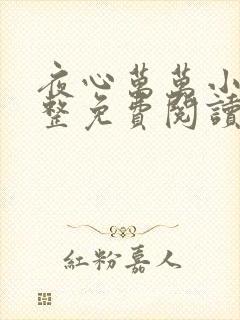 夜心萬萬小
整免費閱讀
紅粉嘉人